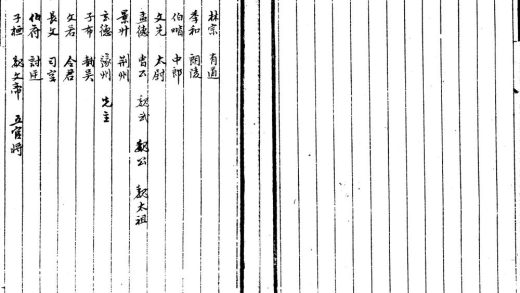 林宗 有道
季和 朗陵
伯喈 中郎
文先 太尉
孟德 曹公 魏武 魏公 魏太祖
景升 荆州
玄德 豫州 先主
子布 張吳
文若 令君
長文 司空
伯符 討逆
子桓 魏文帝 五官將